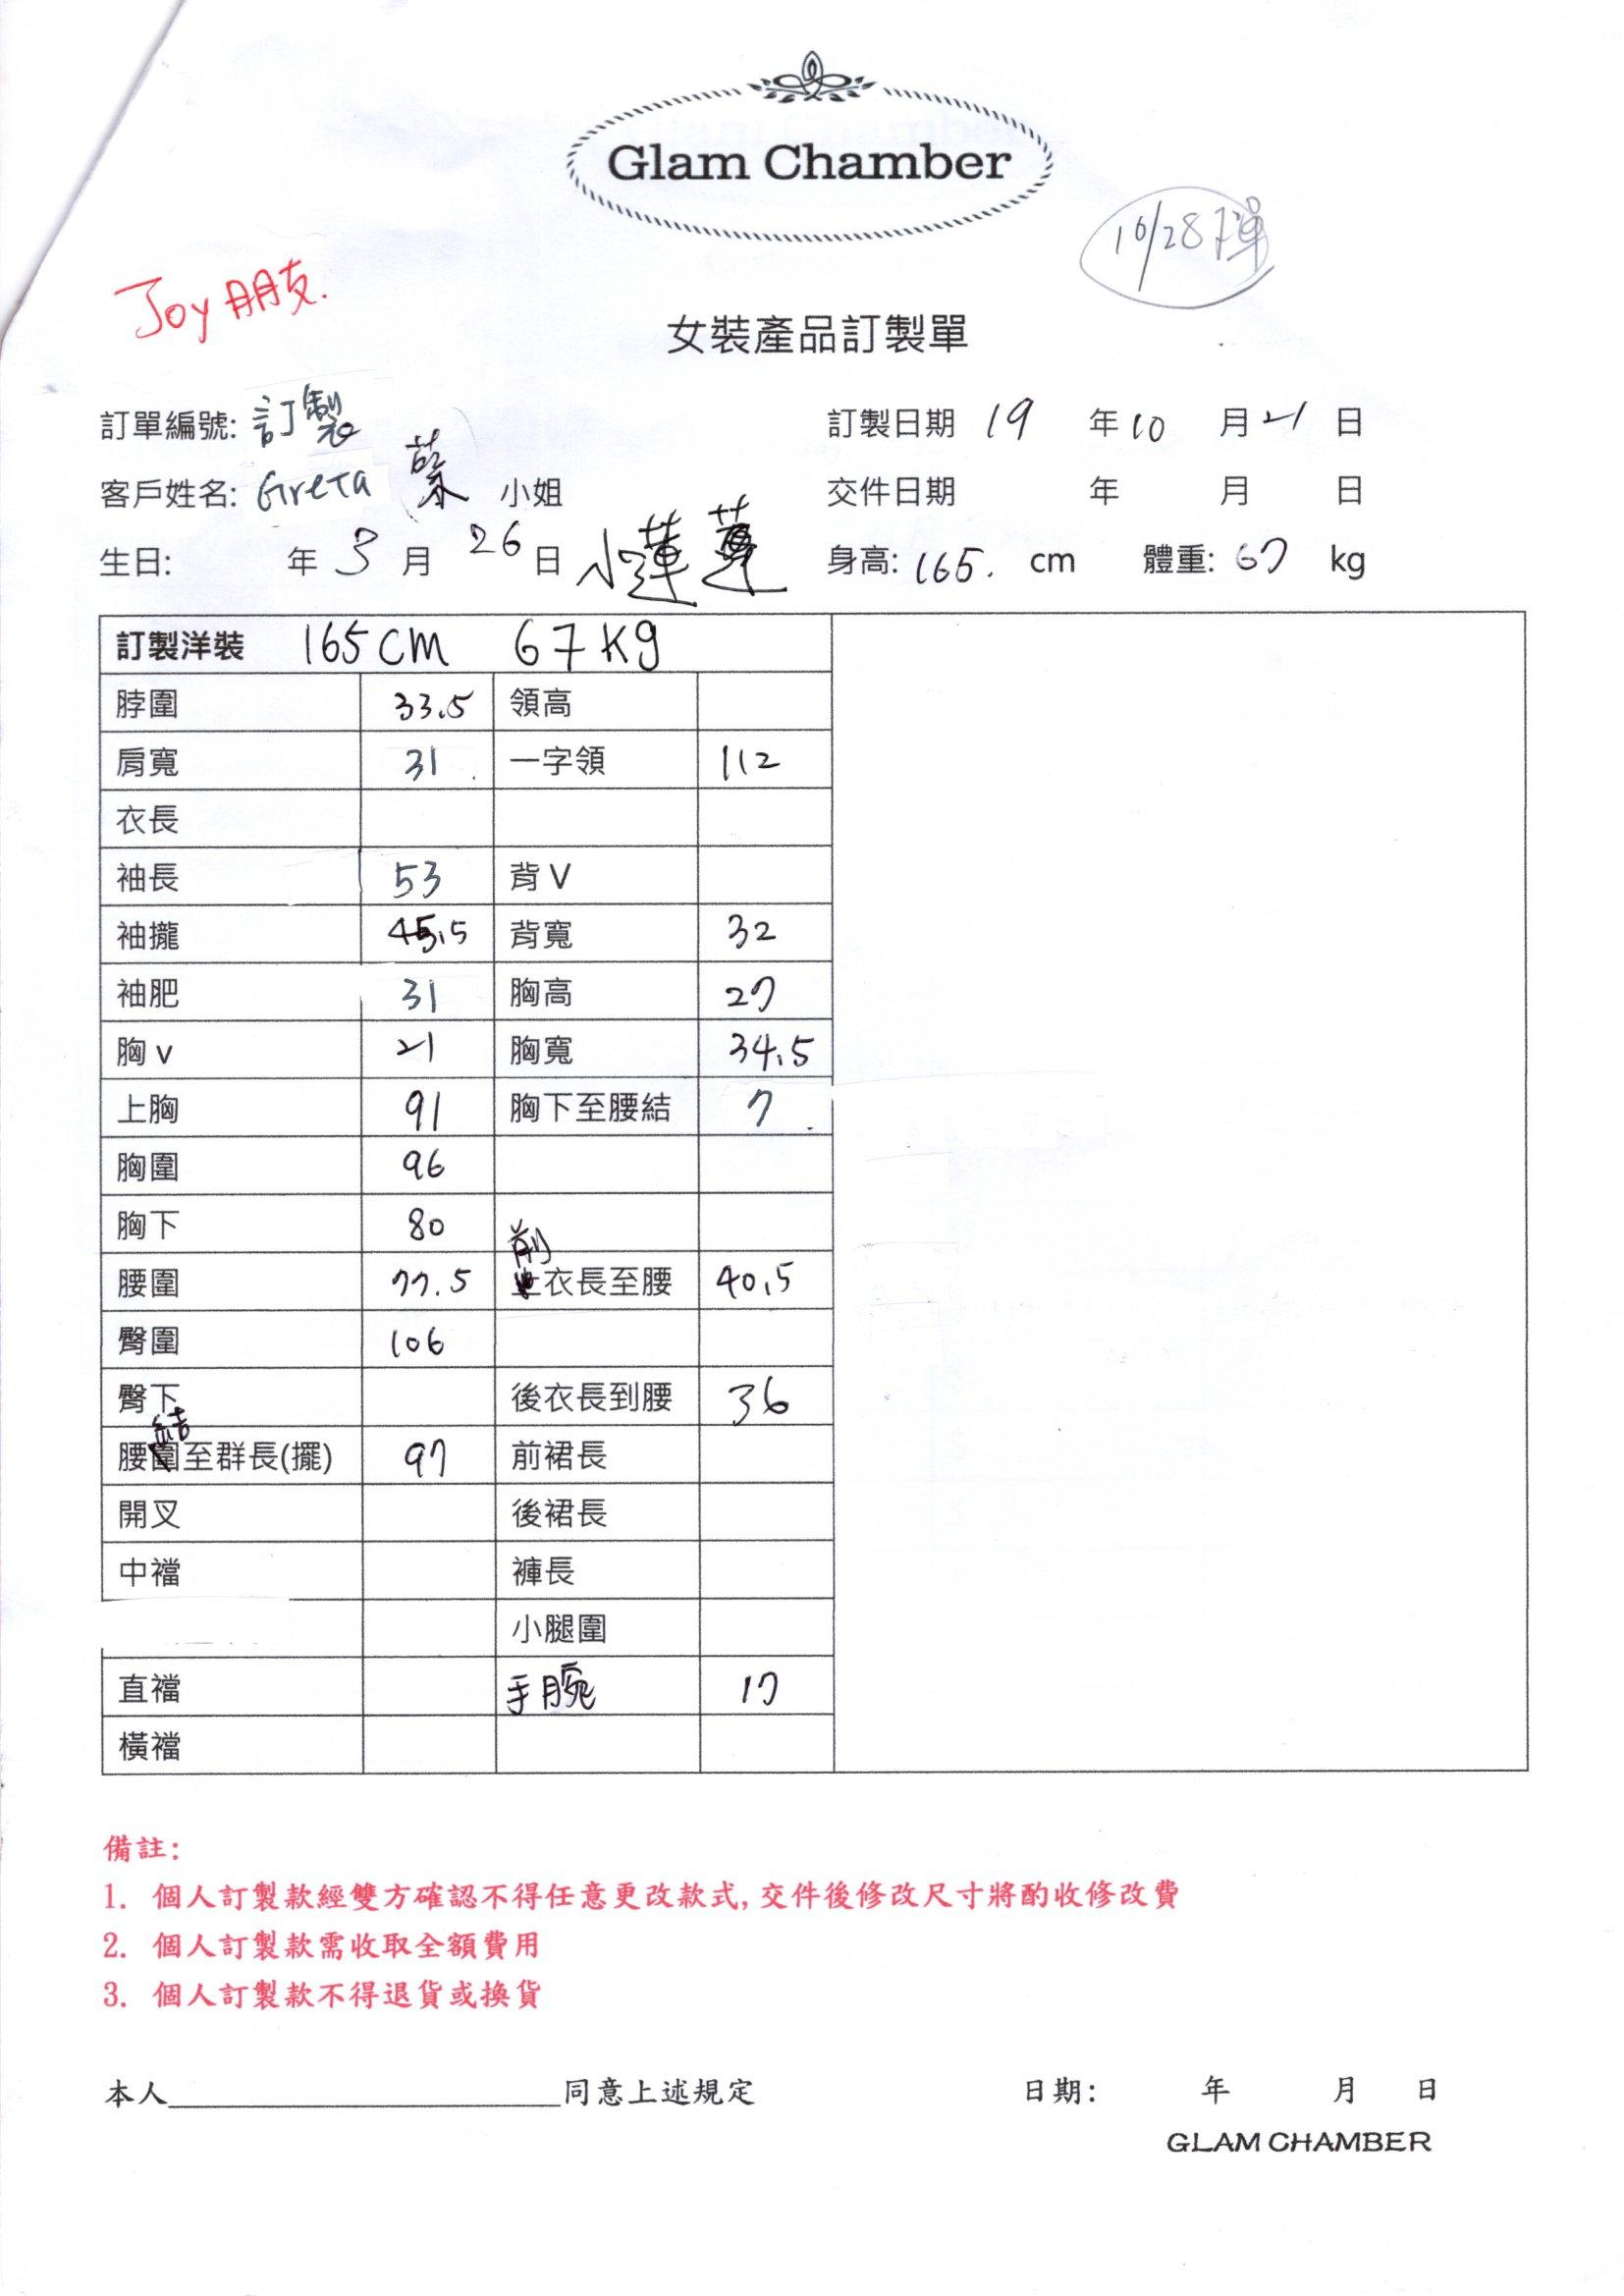 Glam Chamber
10/28
Joy 朋友.
女裝產品訂製單
訂單編號: 訂製 訂製日期 19 年 10 月 21 日
客戶姓名: Greta 蔡 小姐 交件日期 年 月 日
生日: 年 3 月 26 日 小蓮蓮 身高: 165. cm 體重: 67 kg
訂製洋裝 165cm 67kg
脖圍 33.5 領高
肩寬 31 一字領 112
衣長
袖長 53 背 V
袖攏 45.5 背寬 32
袖肥 31 胸高 27
胸 v 21 胸寬 34.5
上胸 91 胸下至腰結 7
胸圍 96
胸下 80
腰圍 77.5 前衣長至腰 40.5
臀圍 106
臀下 後衣長到腰 36
腰結至群長(擺) 97 前裙長
開叉 後裙長
中襠 褲長
小腿圍
直襠 手腕 17
橫襠
備註:
1. 個人訂製款經雙方確認不得任意更改款式, 交件後修改尺寸將酌收修改費
2. 個人訂製款需收取全額費用
3. 個人訂製款不得退貨或換貨
本人____________________同意上述規定 日期: 年 月 日
GLAM CHAMBER